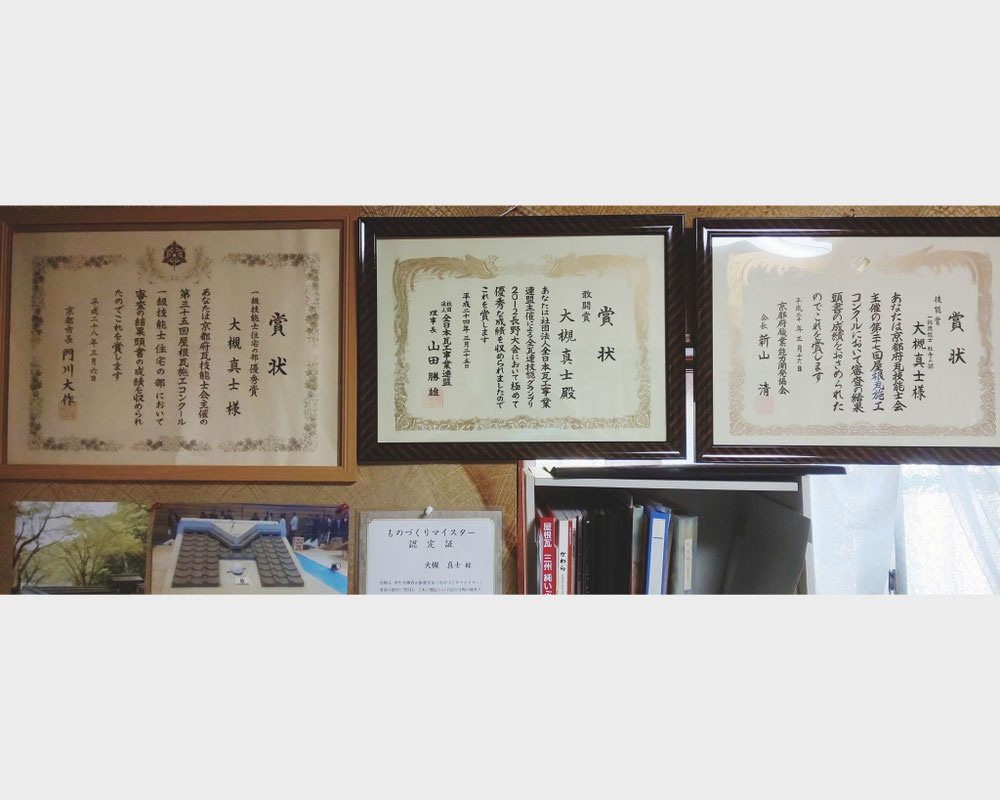 賞状
一級技能士住宅の部 優秀賞
大槻真士様
あなたは京都府瓦技能士会主催の
第三十五回屋根瓦施工コンクール
一級技能士住宅の部において
審査の結果頭書の成績を収められ
たのでこれを賞します
平成二十八年三月六日
京都市長 門川大作
賞状
敢闘賞
大槻真士殿
あなたは社団法人全日本瓦工事業
連盟主催による全瓦連技能グランプリ
2012長野大会において極めて
優秀な成績を収められましたので
これを賞します
平成二十四年三月二十五日
社団法人 全日本瓦工事業連盟
理事長 山田勝雄
賞状
技能賞
大槻真士様
あなたは京都府瓦技能士会
主催の第三十七回屋根瓦施工
コンクールにおいて審査の結果
頭書の成績をおさめられた
のでこれを賞します
平成三十年三月十八日
京都府職業能力開発協会
会長 新山 清
ものづくりマイスター
認定証
大槻 真士 殿
屋根瓦 三州 純い
かわら